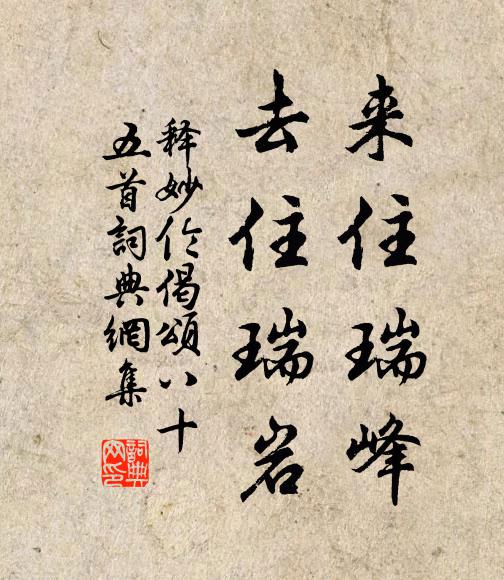 来住瑞峰
去住瑞岩
释妙伦偈颂八十
五首词典網集
詞典
网印